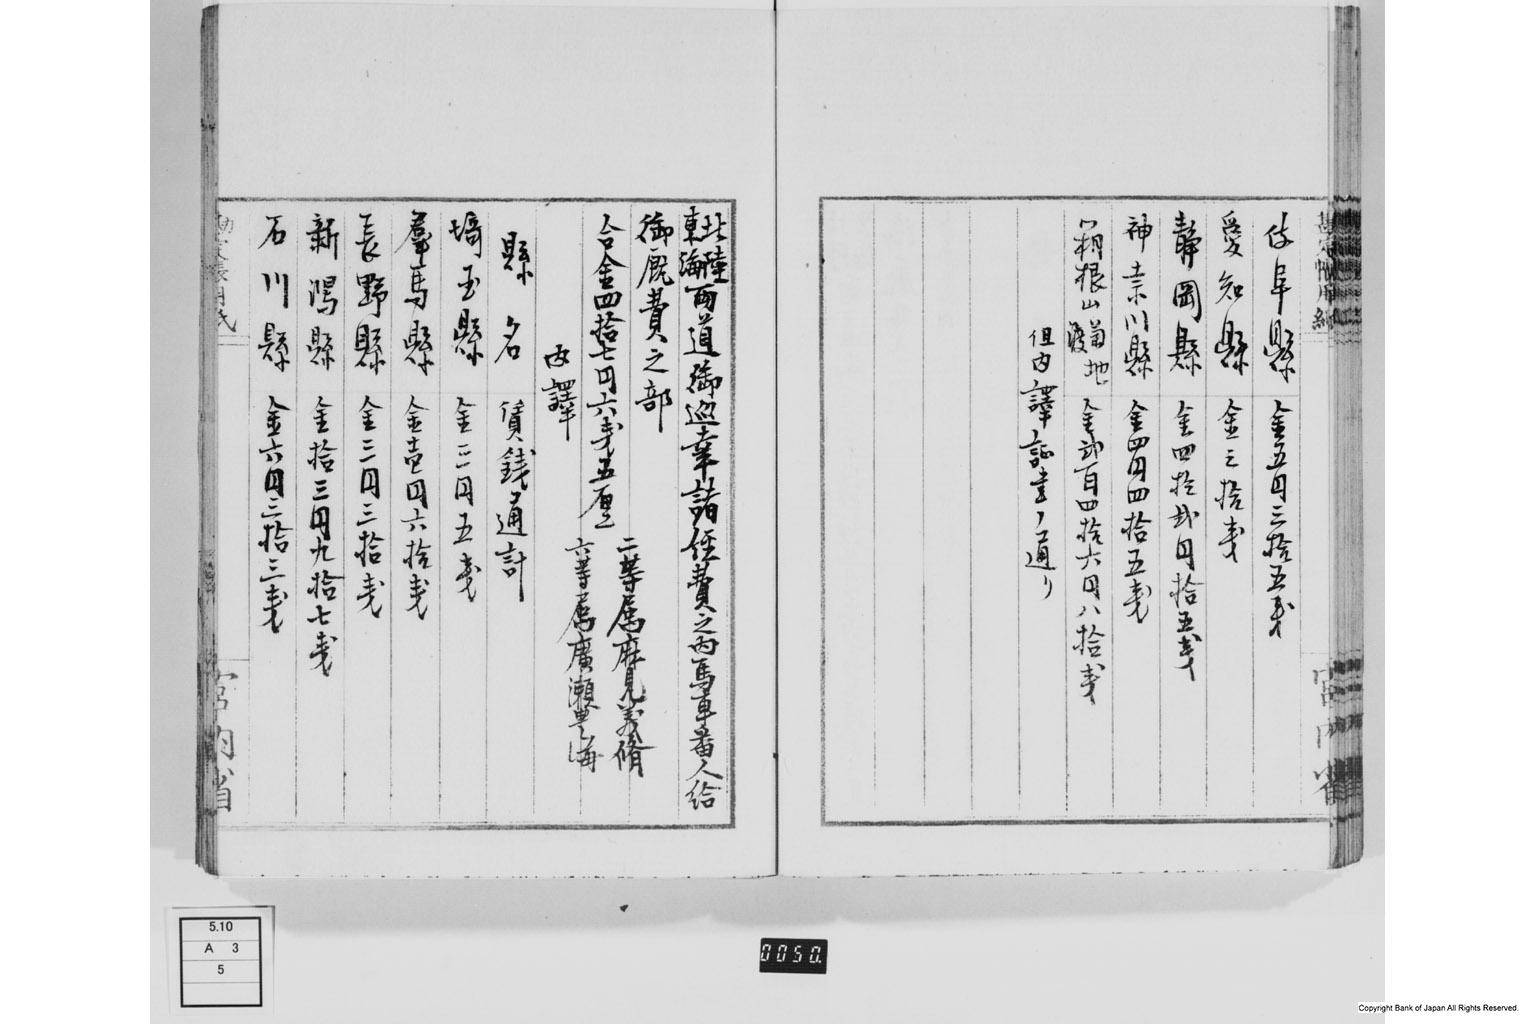 岐阜縣 金五円三拾五戋
愛知縣 金三拾戋
静岡縣 金四拾弐円拾五戋
神奈川縣 金四円四拾五戋
箱根山 地 金弐百四拾六円八拾戋
但内譯証書ノ通リ
宮内省
北陸東海両道御巡幸諸経費之内馬車番人給
御厩費之部
合金四拾七円六戋五厘
二等属麻見義脩
六等属廣瀬豊海
内譯
縣名 賃銭通計
埼玉縣 金二円五戋
羣馬縣 金壱円六拾戋
長野縣 金二円三拾戋
新潟縣 金拾三円九拾七戋
石川縣 金六円三拾三戋
宮内省
5.10
A 3
5
0050.
Copyright Bank of Japan All Rights Reserved.